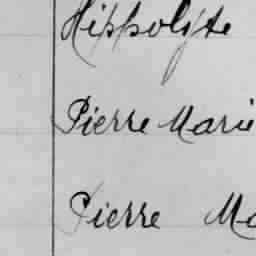 Hippolyte
Pierre Marie
Pierre Ma